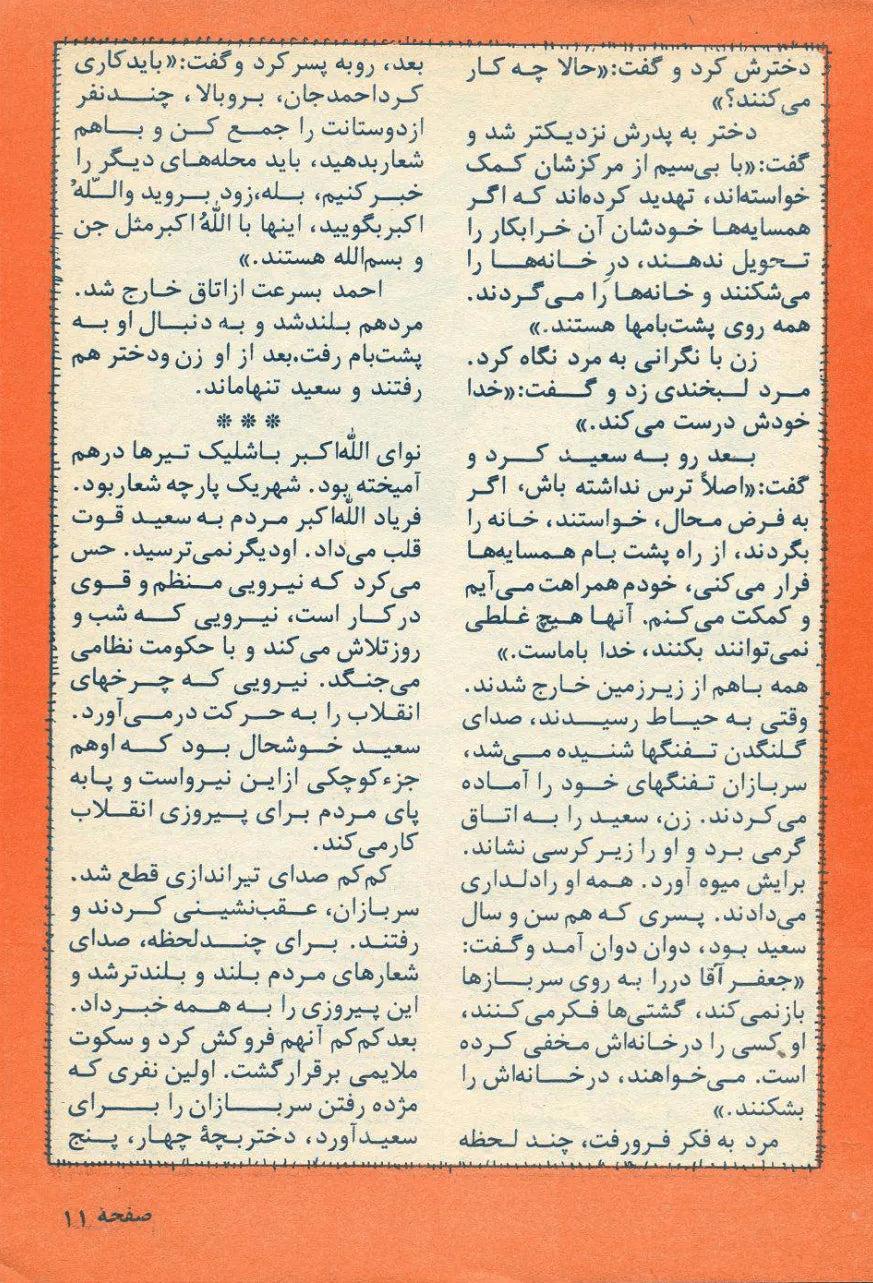 دخترش کرد و گفت:«حالا چه کار
می‌کنند؟»
دختر به پدرش نزدیکتر شد و
گفت:«با بی‌سیم از مرکزشان کمک
خواسته‌اند، تهدید کرده‌اند که اگر
همسایه‌ها خودشان آن خرابکار را
تحویل ندهند، درِ خانه‌ها را
می‌شکنند و خانه‌ها را می‌گردند.
همه روی پشت‌بامها هستند.»
زن با نگرانی به مرد نگاه کرد.
مرد لبخندی زد و گفت:«خدا
خودش درست می‌کند.»
بعد رو به سعید کرد و
گفت:«اصلاً ترس نداشته باش، اگر
به فرض محال، خواستند، خانه را
بگردند، از راه پشت بام همسایه‌ها
فرار می‌کنی، خودم همراهت می‌آیم
و کمکت می‌کنم. آنها هیچ غلطی
نمی‌توانند بکنند، خدا باماست.»
همه باهم از زیرزمین خارج شدند.
وقتی به حیاط رسیدند، صدای
گلنگدن تفنگها شنیده می‌شد،
سربازان تفنگهای خود را آماده
می‌کردند. زن، سعید را به اتاق
گرمی برد و او را زیر کرسی نشاند.
برایش میوه آورد. همه او رادلداری
می‌دادند. پسری که هم سن و سال
سعید بود، دوان دوان آمد وگفت:
«جعفر آقا دررا به روی سربازها
بازنمی‌کند، گشتی‌ها فکرمی‌کنند،
او کسی را درخانه‌اش مخفی کرده
است. می‌خواهند، درخانه‌اش را
بشکنند.»
مرد به فکر فرورفت، چند لحظه
بعد، روبه پسرکرد وگفت:«بایدکاری
کرداحمدجان، بروبالا، چندنفر
ازدوستانت را جمع کن و باهم
شعاربدهید، باید محله‌های دیگر را
خبرکنیم، بله،زود بروید واللّهُ
اکبربگویید، اینها با اللّهُ اکبرمثل جن
و بسم‌الله هستند.»
احمد بسرعت ازاتاق خارج شد.
مردهم بلندشد و به دنبال او به
پشت‌بام رفت.بعد از او زن ودختر هم
رفتند و سعید تنهاماند.
* * *
نوای اللّه‌اکبر باشلیک تیرها درهم
آمیخته بود. شهریک پارچه شعاربود.
فریاد اللّه‌اکبر مردم به سعید قوت
قلب می‌داد. اودیگرنمی‌ترسید. حس
می‌کرد که نیرویی منظم و قوی
درکار است، نیرویی که شب و
روزتلاش می‌کند و با حکومت نظامی
می‌جنگد. نیرویی که چرخهای
انقلاب را به حرکت درمی‌آورد.
سعید خوشحال بود که اوهم
جزءکوچکی ازاین نیرواست و پابه
پای مردم برای پیروزی انقلاب
کارمی‌کند.
کم‌کم صدای تیراندازی قطع شد.
سربازان، عقب‌نشینی کردند و
رفتند. برای چندلحظه، صدای
شعارهای مردم بلند و بلندترشد و
این پیروزی را به همه خبرداد.
بعدکم‌کم آنهم فروکش کرد و سکوت
ملایمی برقرارگشت. اولین نفری که
مژده رفتن سربازان را برای
سعیدآورد، دختربچهٔ چهار، پنج
صفحهٔ ۱۱